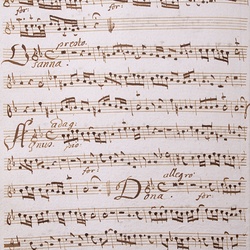 for: for:
presto.
Osanna.
adag:
Agnus. pia:
for: allegro.
Dona. for: